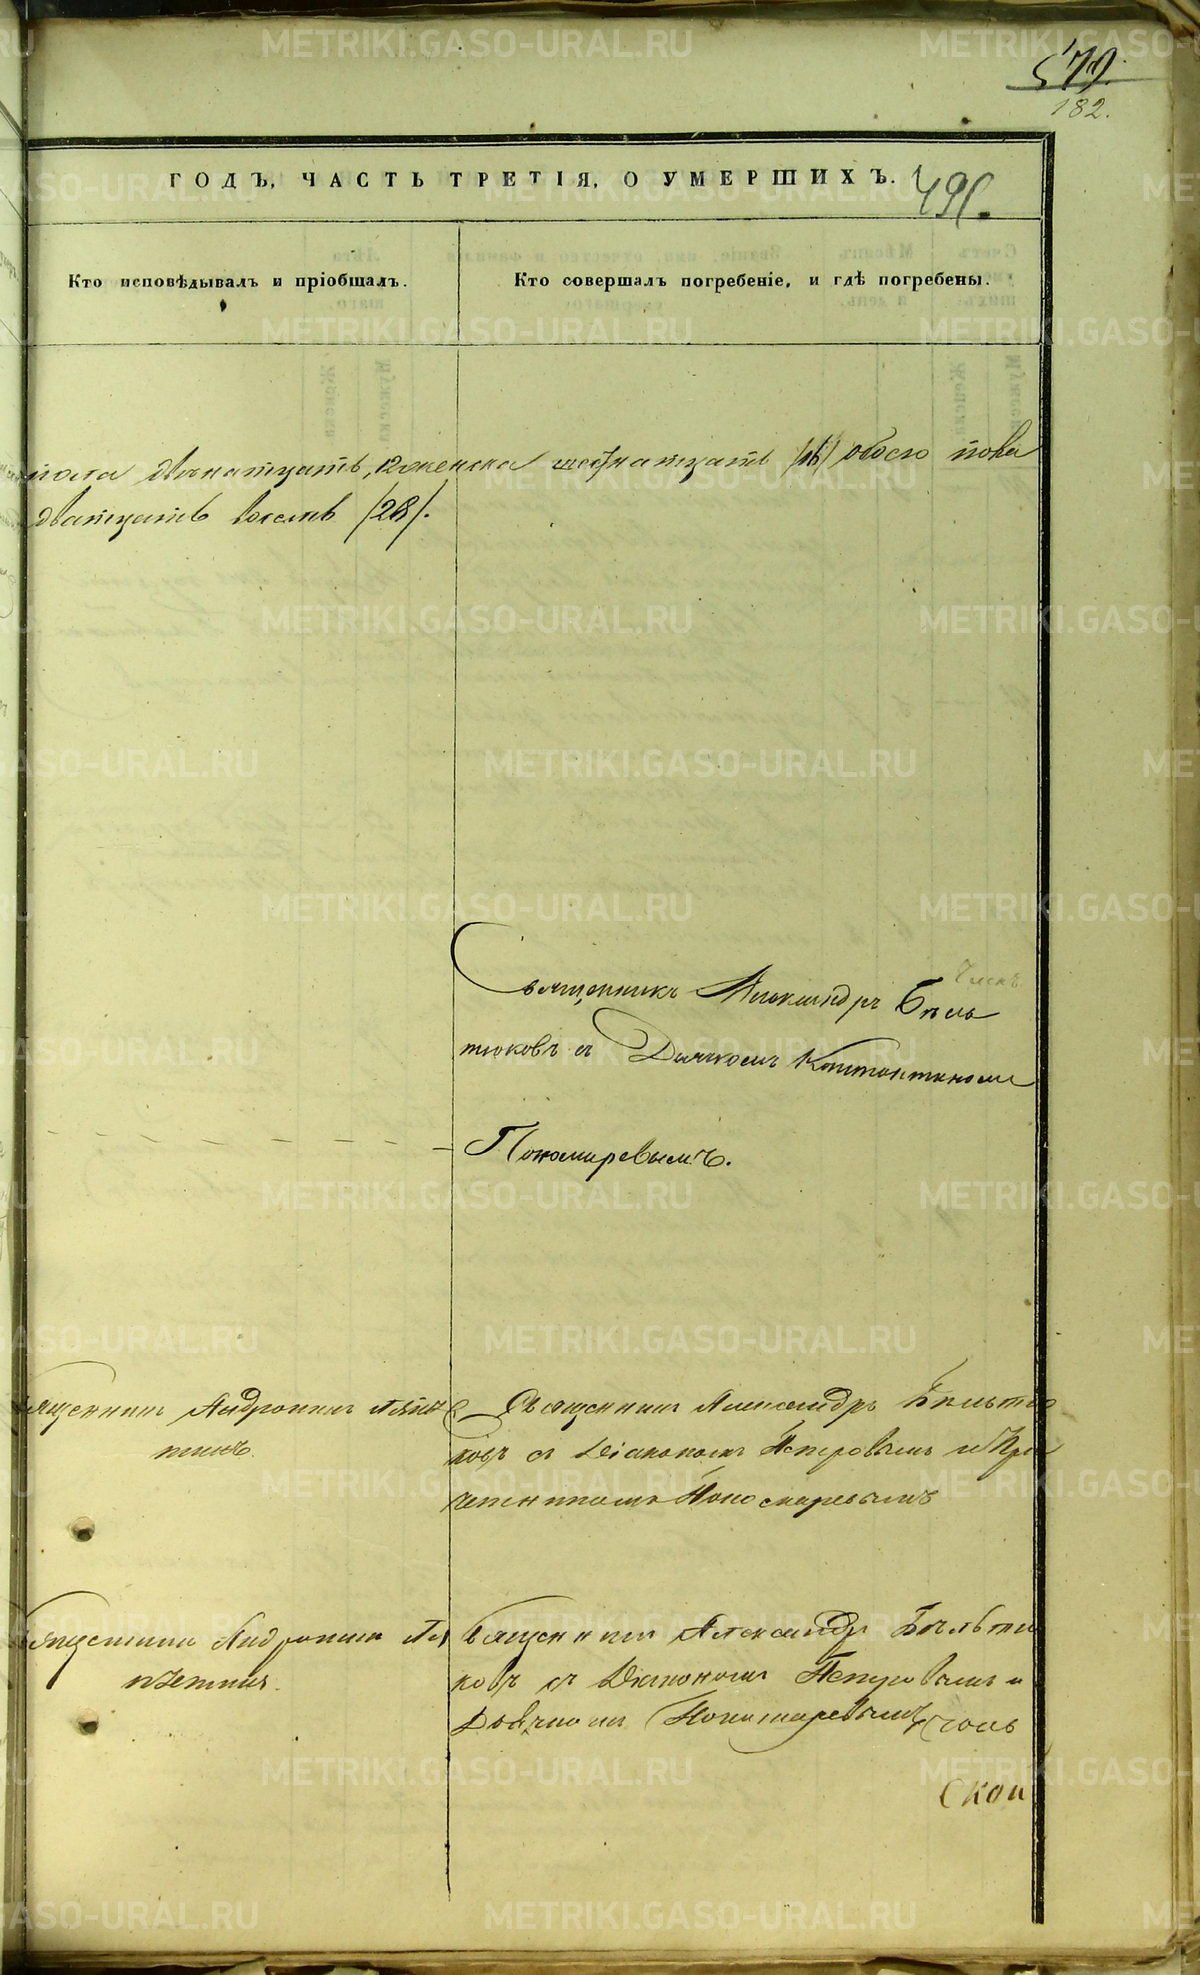 577.
182.
ГОДЪ, ЧАСТЬ ТРЕТІЯ, О УМЕРШИХЪ.
491.
Кто исповѣдывалъ и пріобщалъ.
Кто совершалъ погребеніе, и гдѣ погребены.
пола двѣнатцать, женска шеснатцать /16/ обоего пола
дватцать восемь /28/.
Священникъ Александръ Бѣль
тюковъ съ Дьячкомъ Константиномъ
Пономаревымъ.
Священникъ Андроникъ
Священникъ Александръ Бѣльтю
ковъ съ Діакономъ Петровымъ и При
четникомъ Пономаревымъ
Священникъ Андроникъ
Священникъ Александръ Бѣльтю
ковъ съ Діакономъ Петровымъ и
Дьячкомъ Пономаревымъ
METRIKI.GASO-URAL.RU